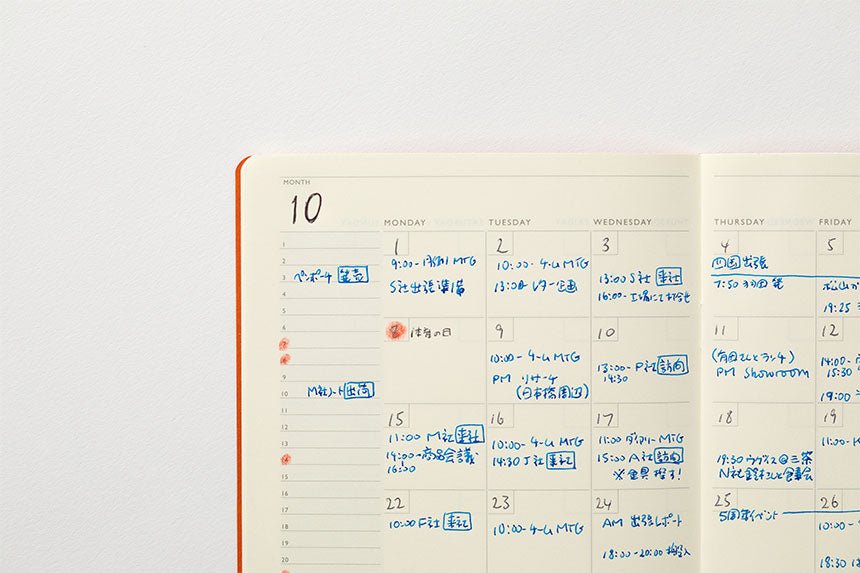 MONTH
10
MONDAY TUESDAY WEDNESDAY THURSDAY FRIDAY
1
2
3 ペンポーチ 発売
4
5
6
7
8
9
10 M社ノート 出荷
11
12
13
14
15
16
17
18
19
20
1
9:00- MTG
S社出張準備
2
10:00- チームMTG
13:00 レター企画
3
13:00 S社 来社
16:00- 工場にて打合せ
4
四国 出張
7:50 羽田発
5
松山
19:25
8 体育の日
9
10:00- チームMTG
PM リサーチ
(日本橋周辺)
10
13:00- P社 訪問
14:30
11
(有田さんとランチ)
PM Showroom
12
14:00-
15:30
19:00
15
11:00 M社 来社
14:00- 商品会議
16:00
16
10:00- チームMTG
14:30 J社 来社
17
11:00 ダイアリーMTG
15:00 A社 訪問
※金具探す!
18
19:30 @三茶
N社鈴木さんと食事会
19
11:00-
22
10:00 F社 来社
23
10:00- チームMTG
24
AM 出張レポート
18:00-20:00 搬入
25
5周年イベント
26
10:00-
18:30